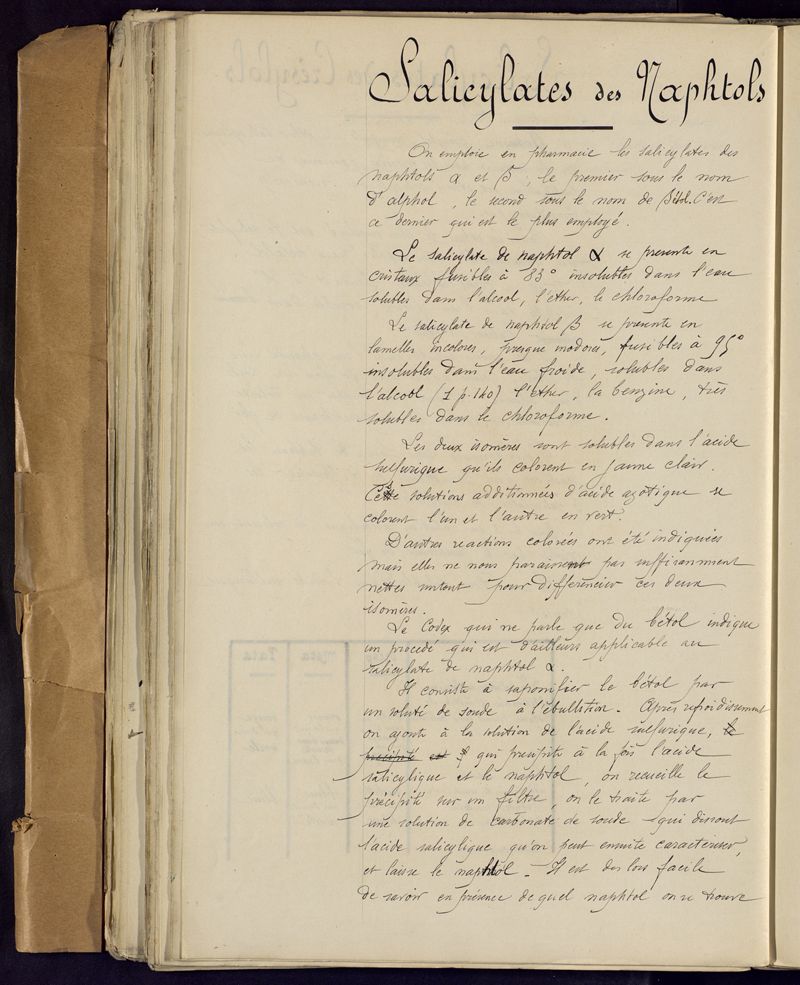 Salicylates des Naphtols
On emploie en pharmacie les salicylates des
naphtols α et β, le premier sous le nom
d'alphol, le second sous le nom de Bétol. C'est
ce dernier qui est le plus employé.
Le salicylate de naphtol α se présente en
cristaux fusibles à 83° insolubles dans l'eau
solubles dans l'alcool, l'ether, le chloroforme
Le salicylate de naphtol β se présente en
lamelles incolores, presque inodores, fusibles à 95°
insolubles dans l'eau froide, solubles dans
l'alcool (1 p. 140) l'ether, la benzine, très
solubles dans le chloroforme.
Les deux isomères sont solubles dans l'acide
sulfurique qu'ils colorent en jaune clair.
Ces solutions additionnées d'acide azotique se
colorent l'un et l'autre en vert.
D'autres reactions colorées ont été indiquées
mais elles ne nous paraissent pas suffisamment
nettes surtout pour différencier ces deux
isomères.
Le Codex qui ne parle que du bétol indique
un procédé qui est d'ailleurs applicable au
salicylate de naphtol α.
Il consiste à saponifier le bétol par
un soluté de soude à l'ébullition. Après refroidissement
on ajoute à la solution de l'acide sulfurique, le
précipité est qui précipite à la fois l'acide
salicylique et le naphtol, on recueille le
précipité sur un filtre, on le traite par
une solution de carbonate de soude qui dissout
l'acide salicylique qu'on peut ensuite caractériser,
et laisse le naphtol. Il est des lors facile
de savoir en présence de quel naphtol on se trouve